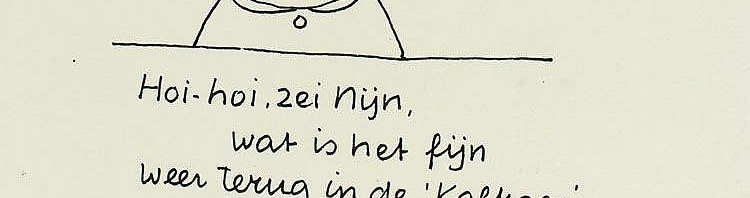 Hoi-hoi, zei Nijn,
wat is het fijn
weer terug in de